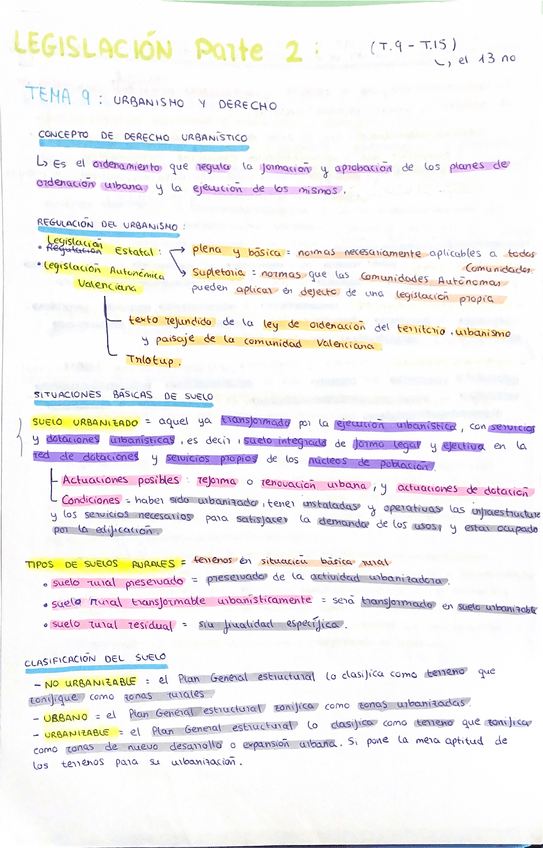 LEGISLACIÓN Parte 2 : (T.9 - T.15)
↳, el 13 no
TEMA 9 : URBANISMO Y DERECHO
CONCEPTO DE DERECHO URBANÍSTICO
↳ Es el ordenamiento que regula la formación y aprobación de los planes de
ordenación urbana, y la ejecución de los mismos.
REGULACIÓN DEL URBANISMO :
Legislación
• Regulación Estatal : → plena y básica = normas necesariamente aplicables a todas
Comunidades.
• Legislación Autonómica → Supletoria = normas que las Comunidades Autónomas
Valenciana pueden aplicar en defecto de una legislación propia
texto refundido de la ley de ordenación del territorio, urbanismo
y paisaje de la comunidad Valenciana
Trlotup.
SITUACIONES BÁSICAS DE SUELO
SUELO URBANIZADO = aquel ya transformado por la ejecución urbanística, con servicios
y dotaciones urbanísticas, es decir, suelo integrado de forma legal y efectiva en la
red de dotaciones y servicios propios de los núcleos de población.
Actuaciones posibles : reforma o renovación urbana, y actuaciones de dotación
Condiciones = haber sido urbanizado, tener instaladas y operativas las infraestructure
y los servicios necesarios para satisfacer la demanda de los usos, y estar ocupado
por la edificación.
TIPOS DE SUELOS RURALES = terrenos en situación básica rural
• suelo rural preservado = preservado de la actividad urbanizadora.
• suelo rural transformable urbanísticamente = será transformado en suelo urbanizable
• suelo rural residual = sin finalidad específica.
CLASIFICACIÓN DEL SUELO
- NO URBANIZABLE = el Plan General estructural lo clasifica como terreno que
zonifique como zonas rurales.
- URBANO = el Plan General estructural zonifica como zonas urbanizadas.
- URBANIZABLE = el Plan General estructural lo clasifica como terreno que zonifica
como zonas de nuevo desarrollo o expansión urbana. Si pone la mera aptitud de
los terrenos para su urbanización.